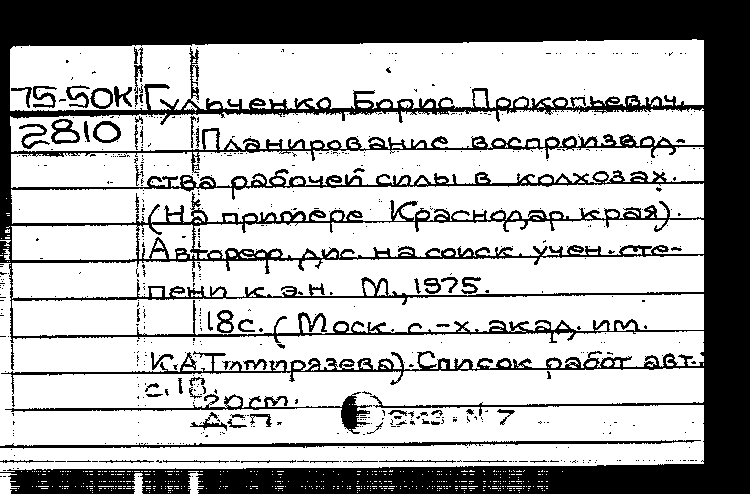 75-50К Гульченко, Борис Прокопьевич.
2810 Планирование воспроизвод-
ства рабочей силы в колхозах.
(На примере Краснодар. края).
Автореф. дис. на соиск. учен. сте-
пени к. э. н. М., 1975.
18с. (Моск. с.-х. акад. им.
К.А.Тимирязева). Список работ авт.:
с. 18.
20 см.
ДСП. № 7